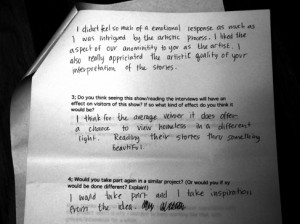 I didnt feel so much of a emotional response as much as
I was intrigued by the artistic process. I liked the
aspect of our anonimity to you as the artist. I
also really appriciated the artistic quality of your
interpretation of the stories.
3; Do you think seeing this show/reading the interviews will have an
effect on visitors of this show? If so what kind of effect do you think it
would be?
I think for the average viewer it does offer
a chance to view homeless in a different
light. Reading their stories thru something
beautiful.
4; Would you take part again in a similar project? (Or would you if
would be done different? Explain!)
I would take part and I take inspiration
from the idea.